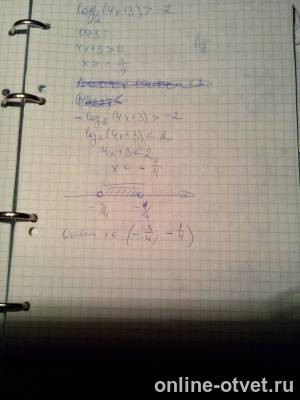 log₂(4x+3) > -2
ОДЗ:
4x+3>0
x > - 3/4
- log₂(4x+3) > -2
log₂(4x+3) < 2
4x+3<2
x < - 1/4
- 3/4 - 1/4
Ответ x ∈ (- 3/4, - 1/4)
online-otvet.ru